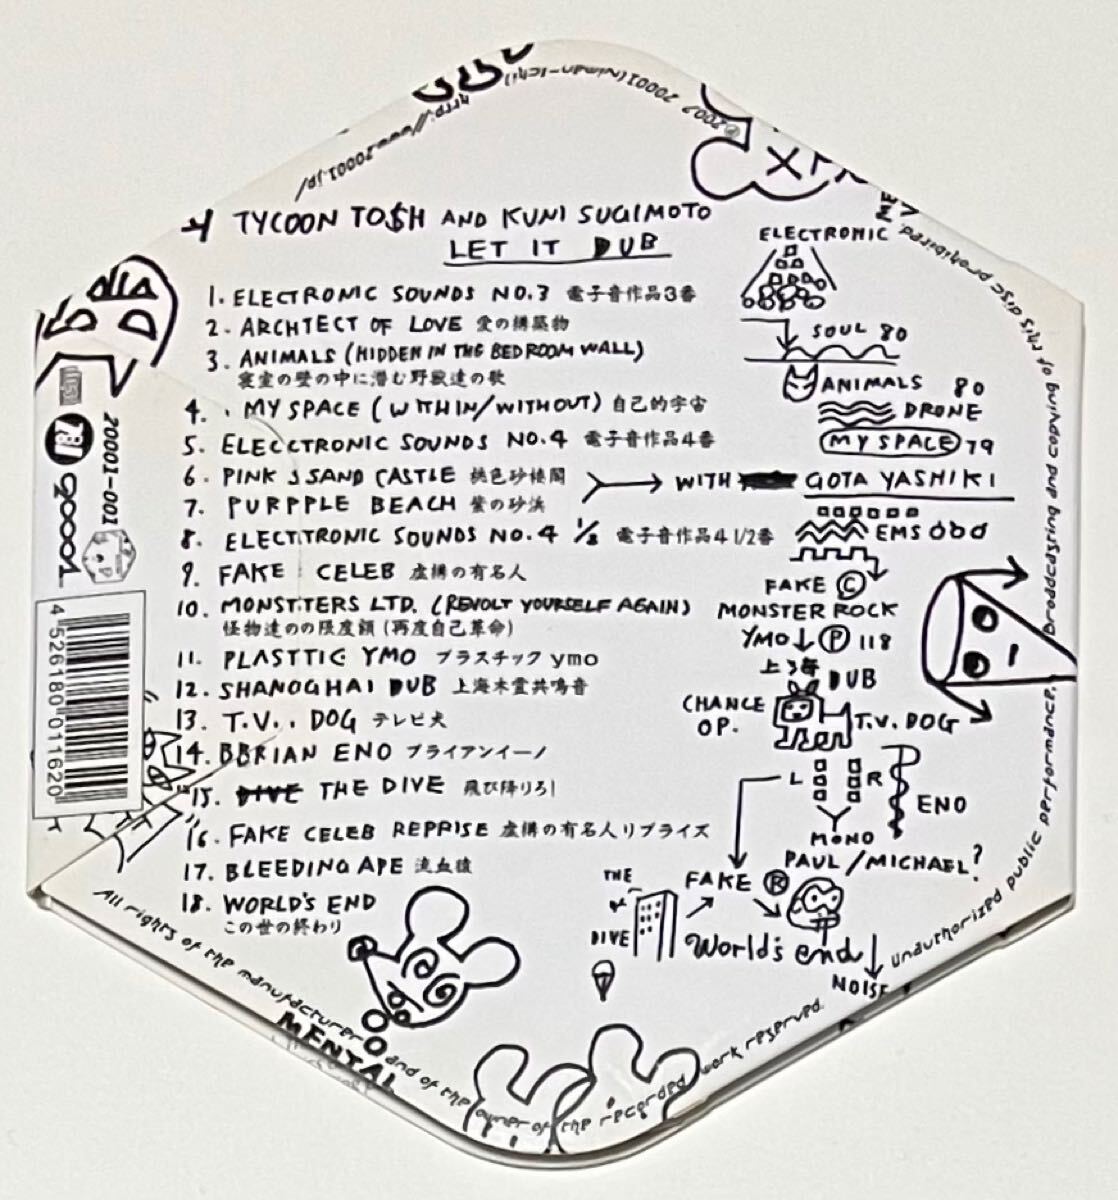 http://www.20001.jp/
℗2002 20001(niman-ichi)
TYCOON TO$H AND KUNI SUGIMOTO
LET IT DUB
1. ELECTRONIC SOUNDS NO.3 電子音作品3番
2. ARCHTECT OF LOVE 愛の構築物
3. ANIMALS (HIDDEN IN THE BEDROOM WALL)
寝室の壁の中に潜む野獣達の歌
4. . MY SPACE (WITHIN/WITHOUT) 自己的宇宙
5. ELECCTRONIC SOUNDS NO.4 電子音作品4番
6. PINK SAND CASTLE 桃色砂楼閣
7. PURPPLE BEACH 紫の砂浜
8. ELECTTRONIC SOUNDS NO.4 1/2 電子音作品4 1/2番
9. FAKE CELEB 虚構の有名人
10. MONSTTERS LTD. (REVOLT YOURSELF AGAIN)
怪物達のの限度額 (再度自己革命)
11. PLASTTIC YMO プラスチック ymo
12. SHANGGHAI DUB 上海木霊共鳴音
13. T.V.. DOG テレビ犬
14. BBRIAN ENO ブライアンイーノ
15. DIVE THE DIVE 飛び降りろ!
16. FAKE CELEB REPRISE 虚構の有名人リプライズ
17. BLEEDING APE 流血猿
18. WORLD'S END
この世の終わり
ELECTRONIC
SOUL 80
ANIMALS 80
DRONE
MY SPACE 79
WITH GOTA YASHIKI
EMS
FAKE ©
MONSTER ROCK
YMO ℗ 118
上海 DUB
CHANCE OP.
T.V. DOG
L R
ENO
MONO
PAUL/MICHAEL?
THE
DIVE
FAKE ®
World's end
NOISE
MENTAL
20001-001
20001
4 526180 011620
All rights of the manufacturer and of the owner of the recorded work reserved.
Unauthorized public performance, broadcasting and copying of this disc prohibited